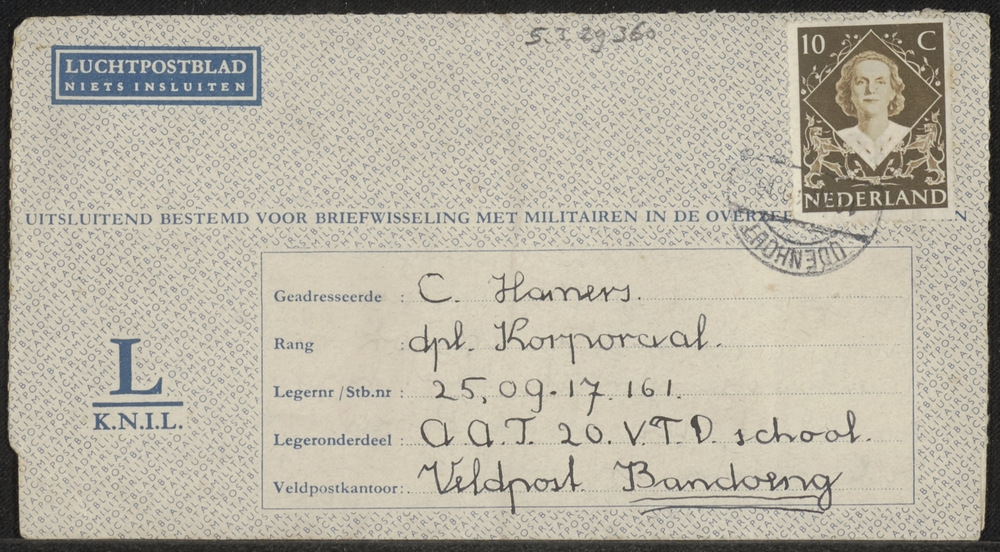 5.3.29360
LUCHTPOSTBLAD
NIETS INSLUITEN
10 C
NEDERLAND
UITSLUITEND BESTEMD VOOR BRIEFWISSELING MET MILITAIREN IN DE
UDENHOUT
Geadresseerde : C. Hamers.
Rang : dpl. Korporaal.
Legernr / Stb.nr : 25.09.17.161.
Legeronderdeel : A.A.T. 20. V.T.D. school.
Veldpostkantoor : Veldpost Bandoeng
L
K.N.I.L.